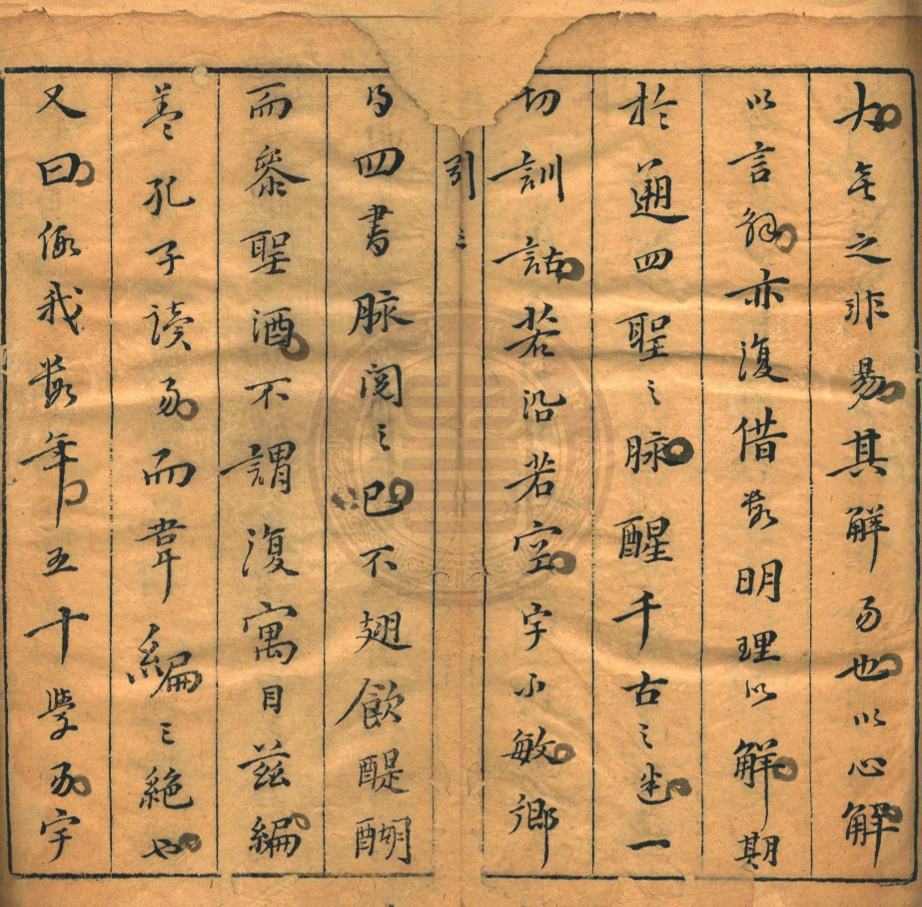 之非易其解易也以心解
以言解亦復借数明理以解期
於遡四聖之脉醒千古之迷一
切訓詁若沿若空字小敏鄉
引 三
得四書脉閱之已不翅飲醍醐
而叅聖酒不謂復寓目茲編
蓋孔子讀易而韋編三絶也
又曰假我數年五十學易字